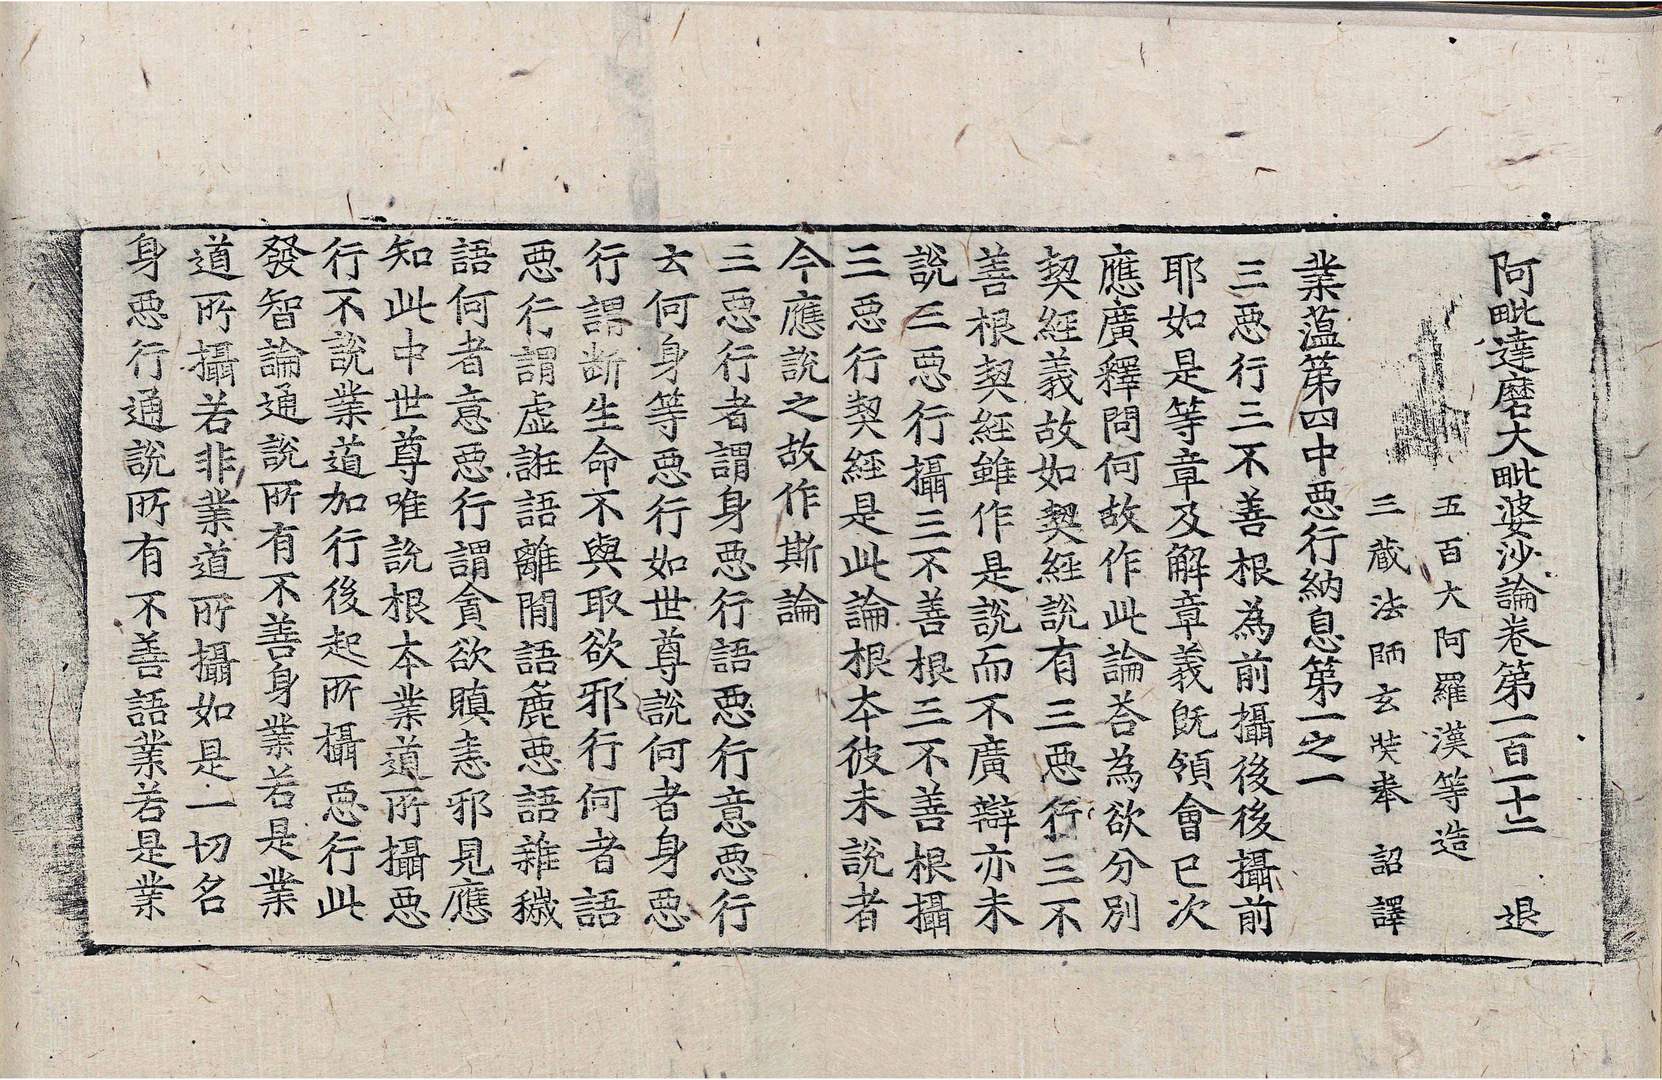 阿毗達磨大毗婆沙論卷第一百一十二 退
五百大阿羅漢等造
三藏法師玄奘奉 詔譯
業薀第四中惡行納息第一之一
三惡行三不善根為前攝後後攝前
耶如是等章及解章義既領會已次
應廣釋問何故作此論荅為欲分別
契經義故如契經說有三惡行三不
善根契經雖作是說而不廣辯亦未
說三惡行攝三不善根三不善根攝
三惡行契經是此論根本彼未說者
今應說之故作斯論
三惡行者謂身惡行語惡行意惡行
云何身等惡行如世尊說何者身惡
行謂斷生命不與取欲邪行何者語
惡行謂虛誑語離間語麁惡語雜穢
語何者意惡行謂貪欲瞋恚邪見應
知此中世尊唯說根本業道所攝惡
行不說業道加行後起所攝惡行此
發智論通說所有不善身業若是業
道所攝若非業道所攝如是一切名
身惡行通說所有不善語業若是業